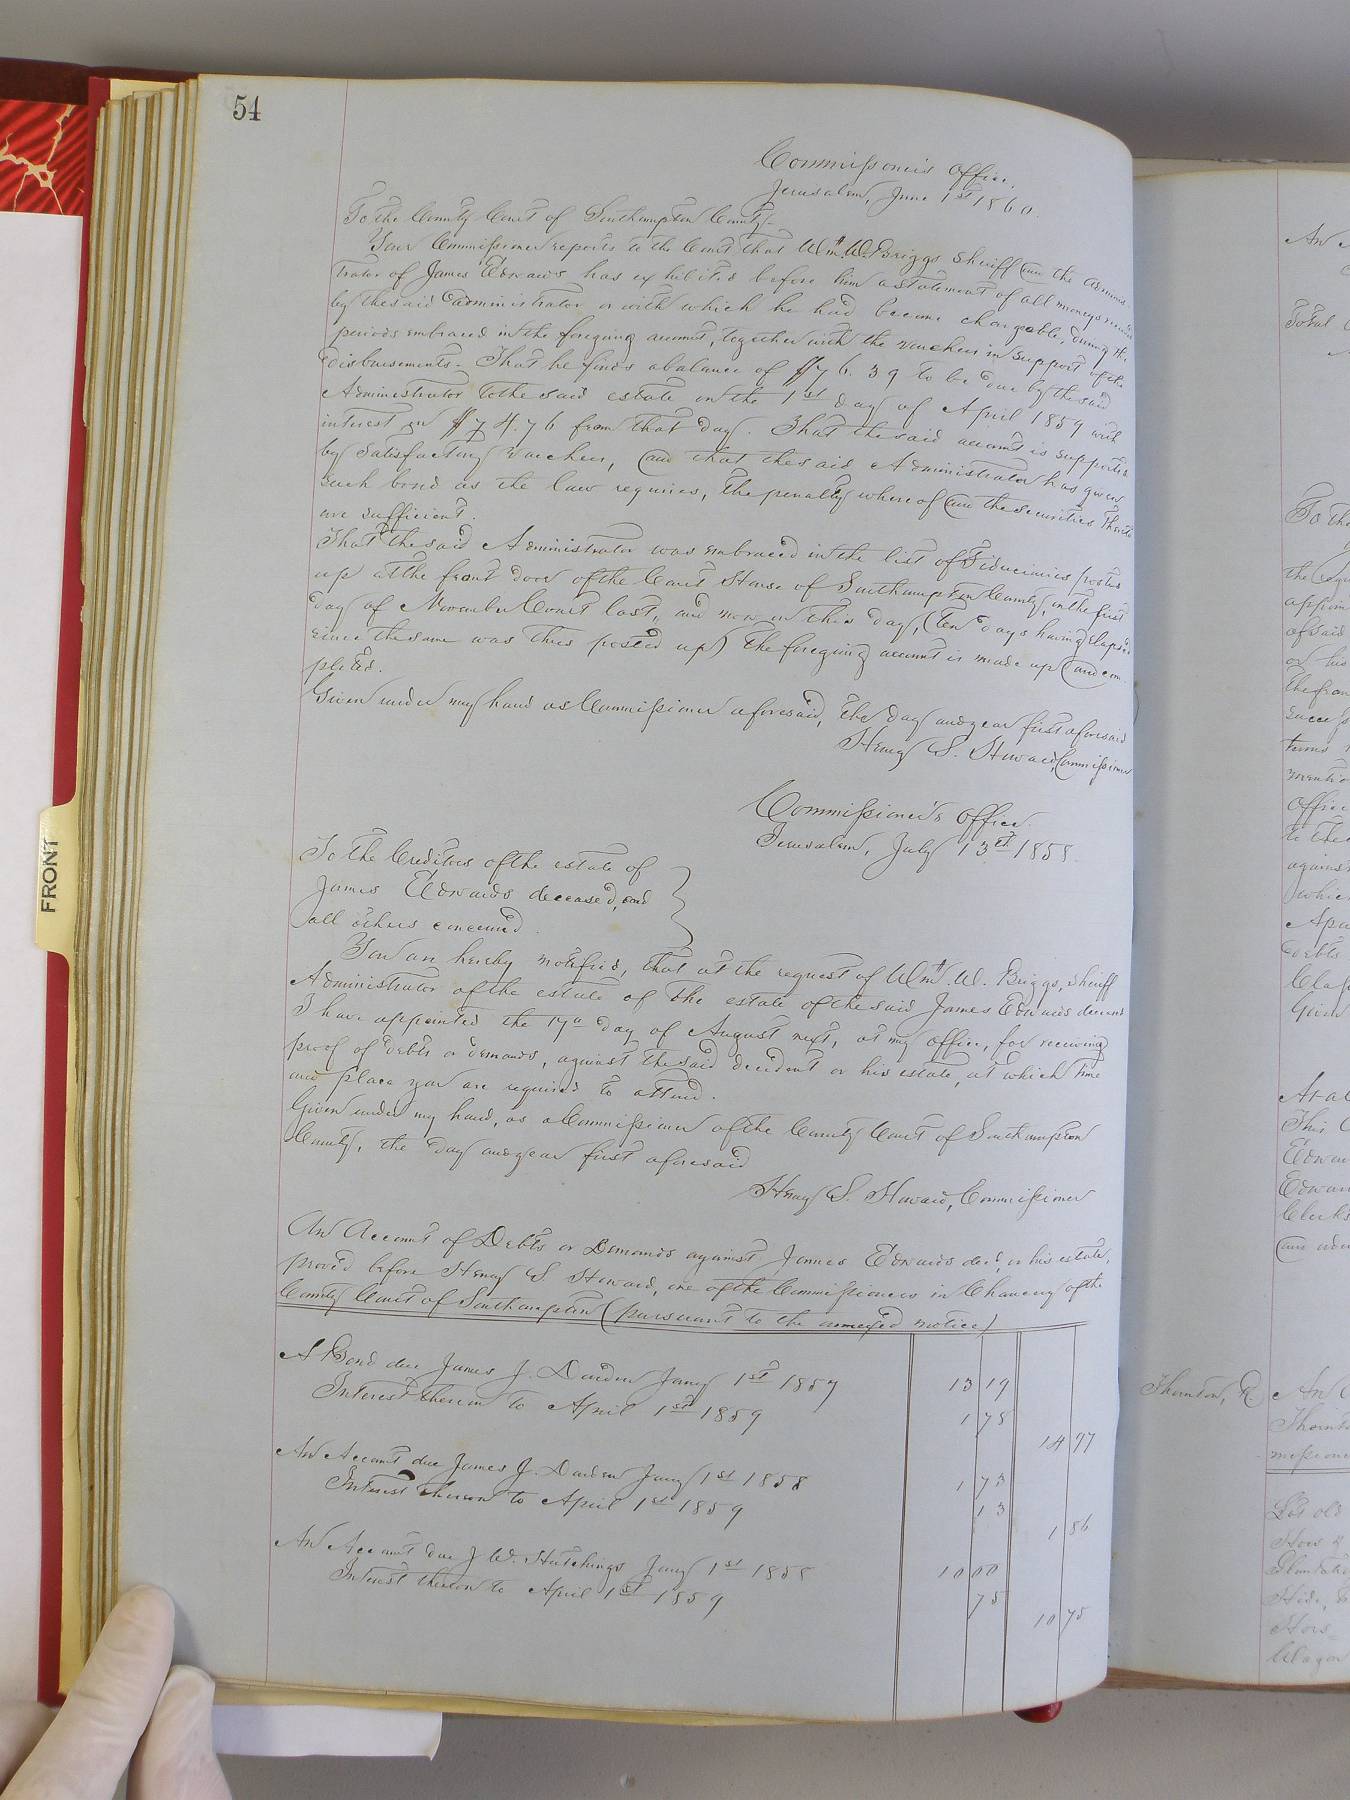 54
Commissioner's Office,
Jerusalem, June 1st 1860.
To the County Court of Southampton County:
Your Commissioner reports to the Court that Wm. W. Briggs Sheriff and the Adminis-
trator of James Edwards has exhibited before him a statement of all moneys received
by the said administrator or with which he had become chargeable, during the
periods embraced in the foregoing account, together with the vouchers in support of the
disbursements. That he finds a balance of $76.39 to be due by the said
Administrator to the said estate on the 1st day of April 1859 with
interest on $74.76 from that day. That the said account is supported
by satisfactory vouchers, and that the said Administrator has given
such bond as the law requires, the penalty whereof and the securities thereto
are sufficient.
That the said Administrator was embraced in the list of Fiduciaries posted
up at the front door of the Court House of Southampton County, on the first
day of November Court last, and now on this day, (ten days having elapsed
since the same was thus posted up) the foregoing account is made up and com-
pleted.
Given under my hand as Commissioner aforesaid, the day and year first aforesaid
Henry S. Howard, Commissioner
Commissioner's Office.
Jerusalem, July 13th 1858.
To the Creditors of the estate of
James Edwards deceased, and
all others concerned.
You are hereby notified, that at the request of Wm. W. Briggs, Sheriff
Administrator of the estate of the estate of the said James Edwards deceased
I have appointed the 17th day of August next, at my office, for receiving
proof of debts or demands, against the said decedent or his estate, at which time
and place you are required to attend.
Given under my hand, as a Commissioner of the County Court of Southampton
County, the day and year first aforesaid
Henry S. Howard, Commissioner
An Account of Debts or Demands against James Edwards decd, or his estate,
proved before Henry S Howard, one of the Commissioners in Chancery of the
County Court of Southampton (pursuant to the annexed notice)
A Bond due James J. Darden Jany 1st 1857 13 19
Interest thereon to April 1st 1859 1 78
14 97
An Account due James J. Darden Jany 1st 1858 1 73
Interest thereon to April 1st 1859 13
1 86
An Account due J W. Hutchings Jany 1st 1858 10 00
Interest thereon to April 1st 1859 75
10 75
FRONT
An
Total
To the
the
of said
or his
the fron
terms
Office
to the
against
which
debts
Given
At a
This
Edwar
Edwar
Clerks
Thornton, R An
Thornt
missione
Lot old
Hors
Plantatio
Hors
Wagon